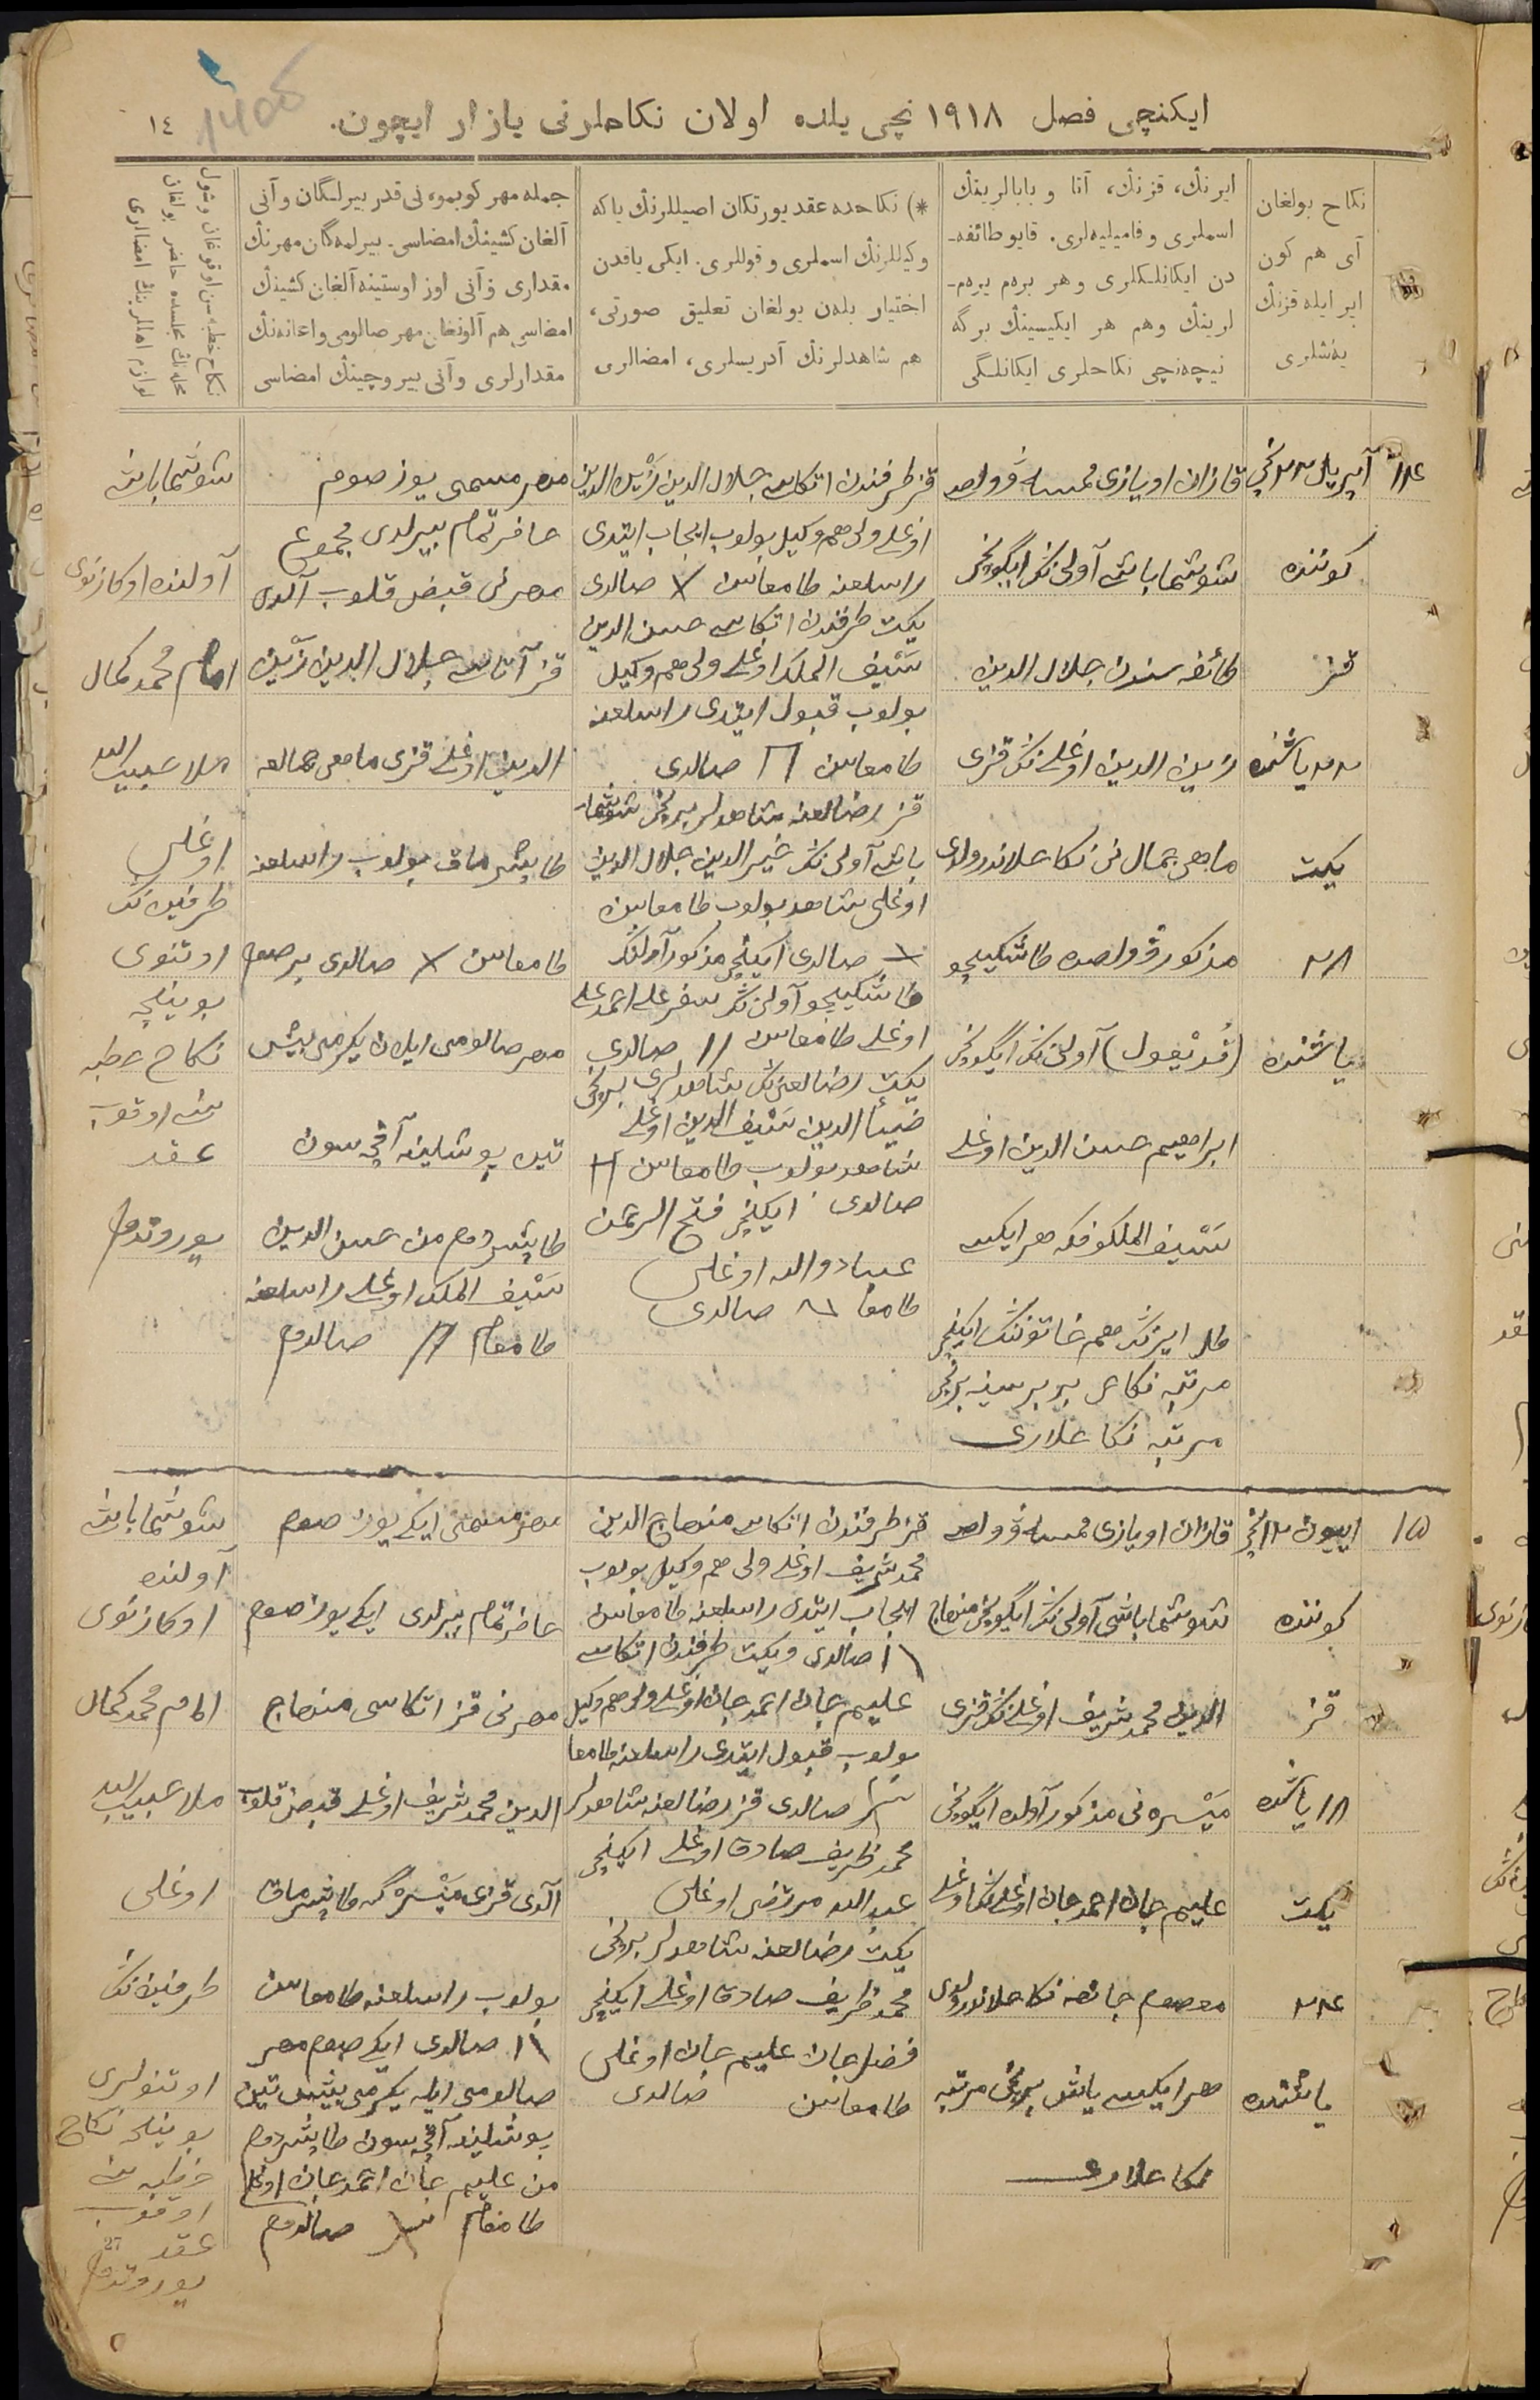 ایکنچی فصل ۱۹۱۸ نچی یلده اولان نکاحلرنی یازار ایچون.
١٤
نکاح بولغان
آی هم کون
ایر ایله قزنڭ
یەشلری
ایرنڭ، قزنڭ، آتا و بابالرینڭ
اسملری و فامیلیەلری. قایو طائفه‌ـ
دن ایکانلکلری و هر برەم یرەم‌ـ
لرینڭ وهم هر ایکیسینڭ برگه
نیچەنچی نکاحلری ایکانلگی
*) نکاحده عقد یورتکان اصیللرنڭ یاکه
وکیللرنڭ اسملری و قوللری. ایکی یاقدن
اختیار بلەن بولغان تعلیق صورتی،
هم شاهدلرنڭ آدریسلری، امضالری
جمله مهر کوبمو، نی قدر بیرلگان وآنی
آلغان کشینڭ امضاسی. بیرلمەگان مهرنڭ
مقداری وآنی اوز اوستینه آلغان کشینڭ
امضاسی هم آلونغان مهر صالومی واعانەنڭ
مقدارلری وآنی بیروچینڭ امضاسی
نکاح خطبه‌سن اوقوغان وشول
مجلسده حاضر بولغان
لوازم اهللرینڭ امضالری
١٤
آپریل ٢٢ نچی
کوننده
قز
٢٢ یاشنده
یکت
٢٨
یاشنده
قازان اویازی ممسه ڤولص
شوشما باش آولی‌نڭ ایگونچی
طائفه سندن جلال الدین
زین الدین اوغلی‌نڭ قزی
ماهی جمال نی نکاحلاندرولدی
مذکور ڤولصده طاشکیچو
آولی‌نڭ ایگونچی
ابراهیم حسن الدین اوغلی
سیف الملکوفکه هر ایکسی
ایرنڭ هم خاتوننڭ ایکنچی
مرتبه نکاحی بر برسینه برنچی
مرتبه نکاحلاری
قز طرفندن اتکاسی جلال الدین زین الدین
اوغلی ولی هم وکیل بولوب ایجاب ایتدی
طامغاسن X صالدی
یکت طرفندن اتکاسی حسن الدین
سیف الملک اوغلی ولی هم وکیل
بولوب قبول ایتدی
طامغاسن صالدی
قز رضالغنه شاهدلر برنچی شوشما
باش آولی‌نڭ خیرالدین جلال الدین
اوغلی شاهد بولوب طامغاسن
صالدی ایکنچی مذکور آولنڭ
طاشکیچو آولی‌نڭ سفرعلی احمدعلی
اوغلی طامغاسن // صالدی
یکت رضالغی‌نڭ شاهدلری برنچی
ضیاالدین سیف الدین اوغلی
شاهد بولوب طامغاسن
صالدی ایکنچی فتح الرحمن
عبادوالله اوغلی
طامغا صالدی
مهر مسمی یوز صوم
حاضر تمام بیرلدی مجموع
مهرنی قبض قلوب آلدی
قز آتاسی جلال الدین زین
الدین اوغلی قزی ماهی جمالغه
طابشرماق بولوب
طامغاسن X صالدی بر صوم
مهر صالومی ایلان یکرمی بیش
تین بوشلینه آقچه سون
طابشردم من حسن الدین
سیف الملک اوغلی
طامغام // صالدم
شوشما باش
آولنده اوکازنوی
امام محمد کمال
ملا حبیب الله
اوغلی
طرفین نڭ
اوتنوی
بوینچه
نکاح خطبه
سن اوقوب
عقد
یوروتدم
١٥
اییون ١٢ نچی
کوننده
قز
١٨ یاشنده
یکت
٢٤
یاشنده
قازان اویازی ممسه ڤولص
شوشما باشی آولی‌نڭ ایگونچی منهاج
الدین محمد شریف اوغلی‌نڭ قزی
میسره نی مذکور آولده ایگونچی
علیم جان احمد جان اوغلی‌نڭ اوغلی
معصوم جانغه نکاحلاندرولدی
هر ایکیسی یاش برنچی مرتبه
نکاحلاری
قز طرفندن اتکاسی منهاج الدین
محمد شریف اوغلی ولی هم وکیل بولوب
ایجاب ایتدی طامغاسن
صالدی و یکت طرفندن اتکاسی
علیم جان احمد جان اوغلی ولی هم وکیل
بولوب قبول ایتدی طامغا
صالدی قز رضالغنه شاهدلر
محمد ظریف صادق اوغلی ایکنچی
عبدالله مرتضی اوغلی
یکت رضالغنه شاهدلر برنچی
محمد ظریف صادق اوغلی ایکنچی
فضل جان علیم جان اوغلی
طامغاسن صالدی
مهر مسمی ایکی یوز صوم
حاضر تمام بیرلدی ایکی یوز صوم
مهرنی قز اتکاسی منهاج
الدین محمد شریف اوغلی قبض قلوب
آلدی قزی میسره گه طابشرماق
بولوب طامغاسن
صالدی ایکی صوم مهر
صالومی ایله یکرمی بیش تین
بوشلینه آقچه سون طابشردم
من علیم جان احمد جان اوغلی
طامغام صالدم
شوشما باش
آولنده
اوکازنوی
امام محمد کمال
ملا حبیب الله
اوغلی
طرفین نڭ
اوتنولری
بوینچه نکاح
خطبه سن
اوقوب
عقد
یوروتدم
27